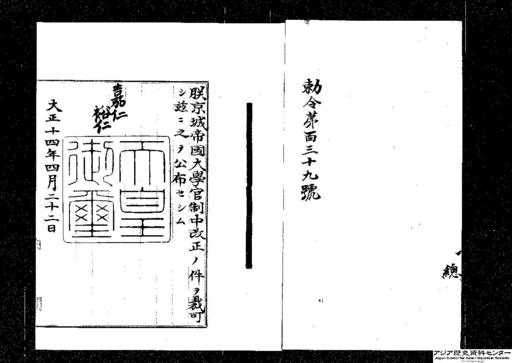 勅令第百三十九號
總
朕京城帝國大學官制中改正ノ件ヲ裁可
シ玆ニ之ヲ公布セシム
嘉仁
裕仁
天皇
御璽
大正十四年四月二十二日
アジア歴史資料センター
Japan Center for Asian Historical Records